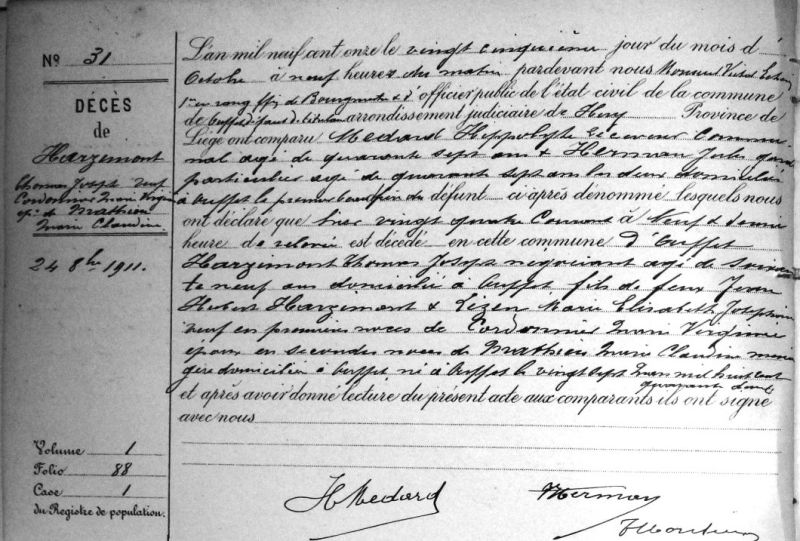 No 31
DÉCÈS
de
Harzimont
Thomas Joseph veuf
Cordonnier Marie Virginie
ép. de Mathieu
Marie Claudine
24 8bre 1911.
Volume 1
Folio 88
Case 1
du Registre de population.
L'an mil neuf cent onze le vingt cinquième jour du mois d'
Octobre à neuf heures du matin pardevant nous
de Bourgmestre officier public de l'état civil de la commune
de arrondissement judiciaire de Huy Province de
Liége ont comparu Medard Hippolyte receveur Commu-
nal agé de quarante sept ans & Herman Jules garde
particulier agé de quarante sept ans les deux domiciliés
à le premier du défunt ci après dénommé lesquels nous
ont déclaré que hier vingt quatre Courant à Neuf & demie
heure de relevée est décédé en cette commune d'
Harzimont Thomas Joseph négociant agé de soixan-
te neuf ans domicilié à fils de feux Jean
Hubert Harzimont & Lizen Marie Elisabeth Joséphine
veuf en premières noces de Cordonnier Marie Virginie
époux en secondes noces de Mathieu Marie Claudine ména-
gère domiciliée à né à le vingt sept mil huit cent
quarante deux
et après avoir donné lecture du présent acte aux comparants ils ont signé
avec nous
H Medard
J Herman